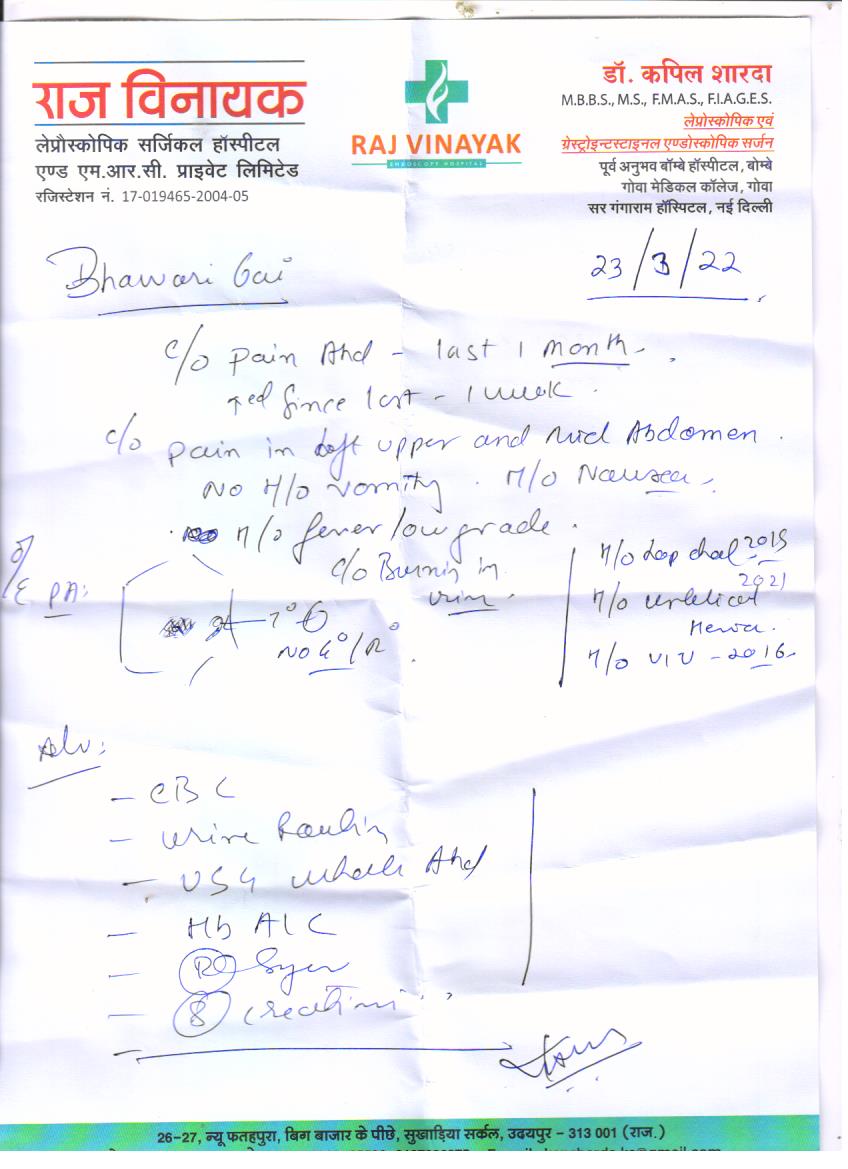 राज विनायक
लेप्रौस्कोपिक सर्जिकल हॉस्पीटल
एण्ड एम.आर.सी. प्राइवेट लिमिटेड
रजिस्टेशन नं. 17-019465-2004-05
RAJ VINAYAK
ENDOSCOPY HOSPITAL
डॉ. कपिल शारदा
M.B.B.S., M.S., F.M.A.S., F.I.A.G.E.S.
लेप्रोस्कोपिक एवं
ग्रेस्ट्रोइन्टस्टाइनल एण्डोस्कोपिक सर्जन
पूर्व अनुभव बॉम्बे हॉस्पीटल, बोम्बे
गोवा मेडिकल कॉलेज, गोवा
सर गंगाराम हॉस्पिटल, नई दिल्ली
Bhawari bai
23/3/22
c/o pain Abd - last 1 month.
↑ed Since last - 1 week.
c/o pain in left upper and mid Abdomen.
NO H/o vomity. H/o Nausea.
H/o fever low grade.
c/o Burnin in
urin.
O/E PA:
T°
NO G°/R°
H/o Lap chol 2015
2021
H/o umbilical
Hernia.
H/o - 2016
Adv:
- CBC
- Urine Routin
- USG whole Abd
- Hb A1C
- Sugar
- S creatinin
26-27, न्यू फतहपुरा, बिग बाजार के पीछे, सुखाड़िया सर्कल, उदयपुर - 313 001 (राज.)